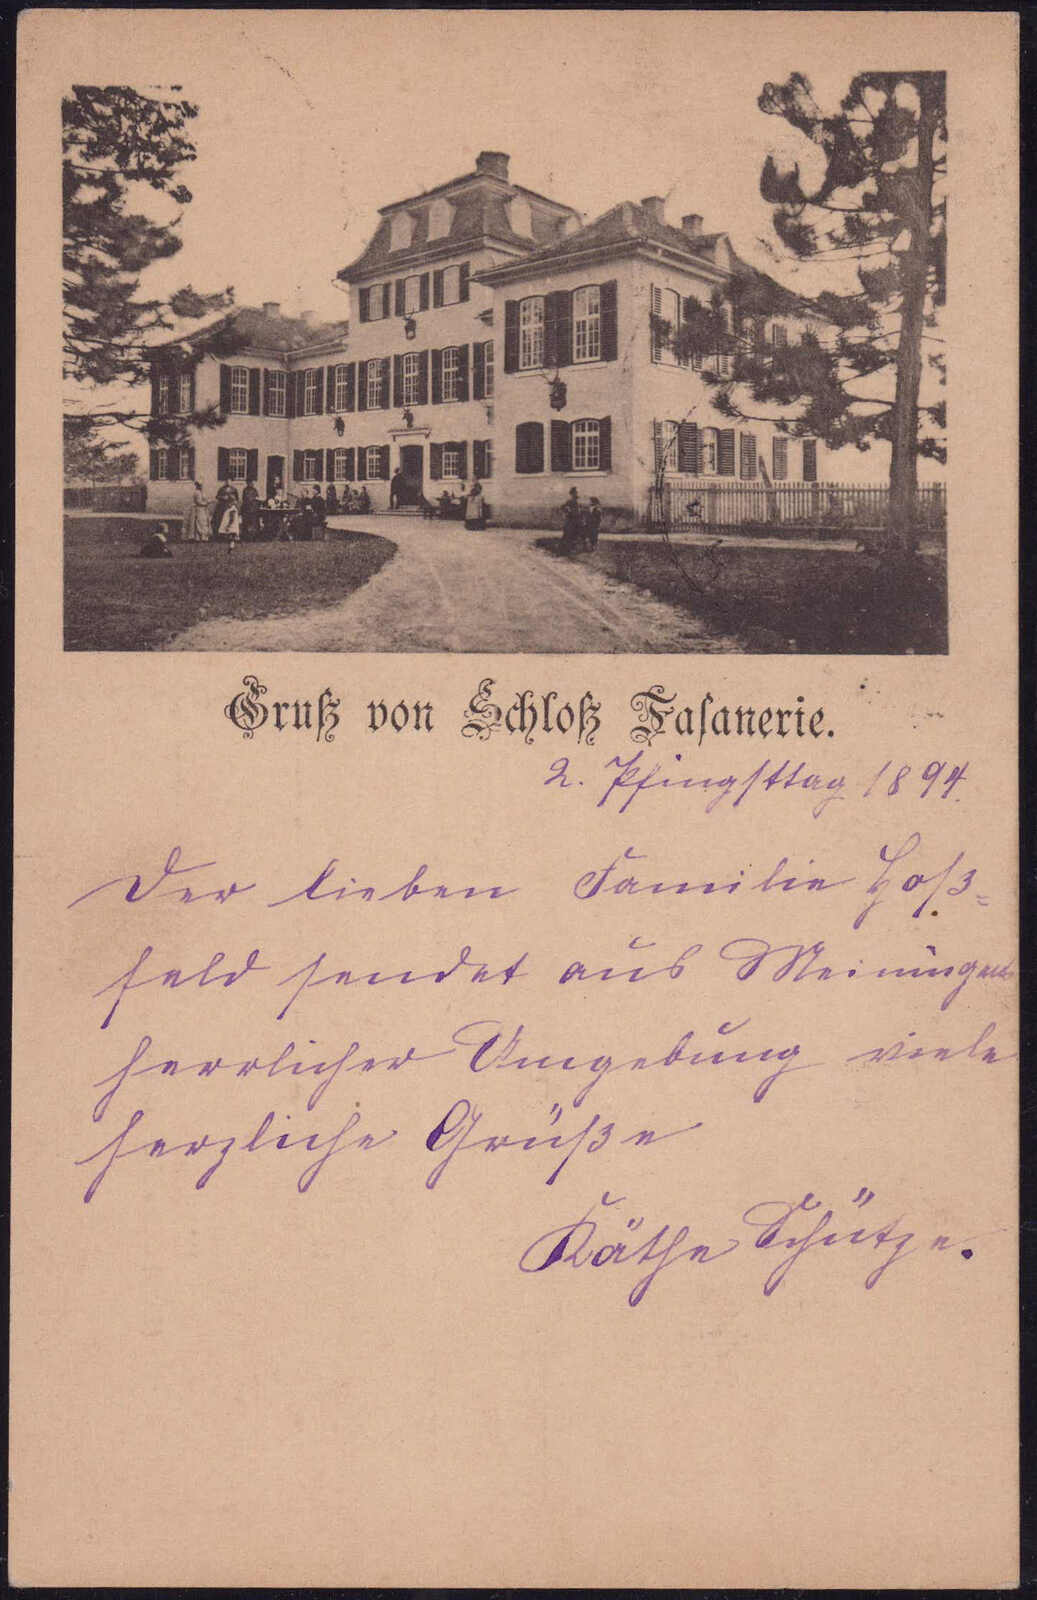 Gruß von Schloß Fasanerie.
2. Pfingsttag 1894.
Der lieben Familie Hoß=
feld sendet aus Meiningens
herrlicher Umgebung viele
herzliche Grüße
Käthe Schütze.